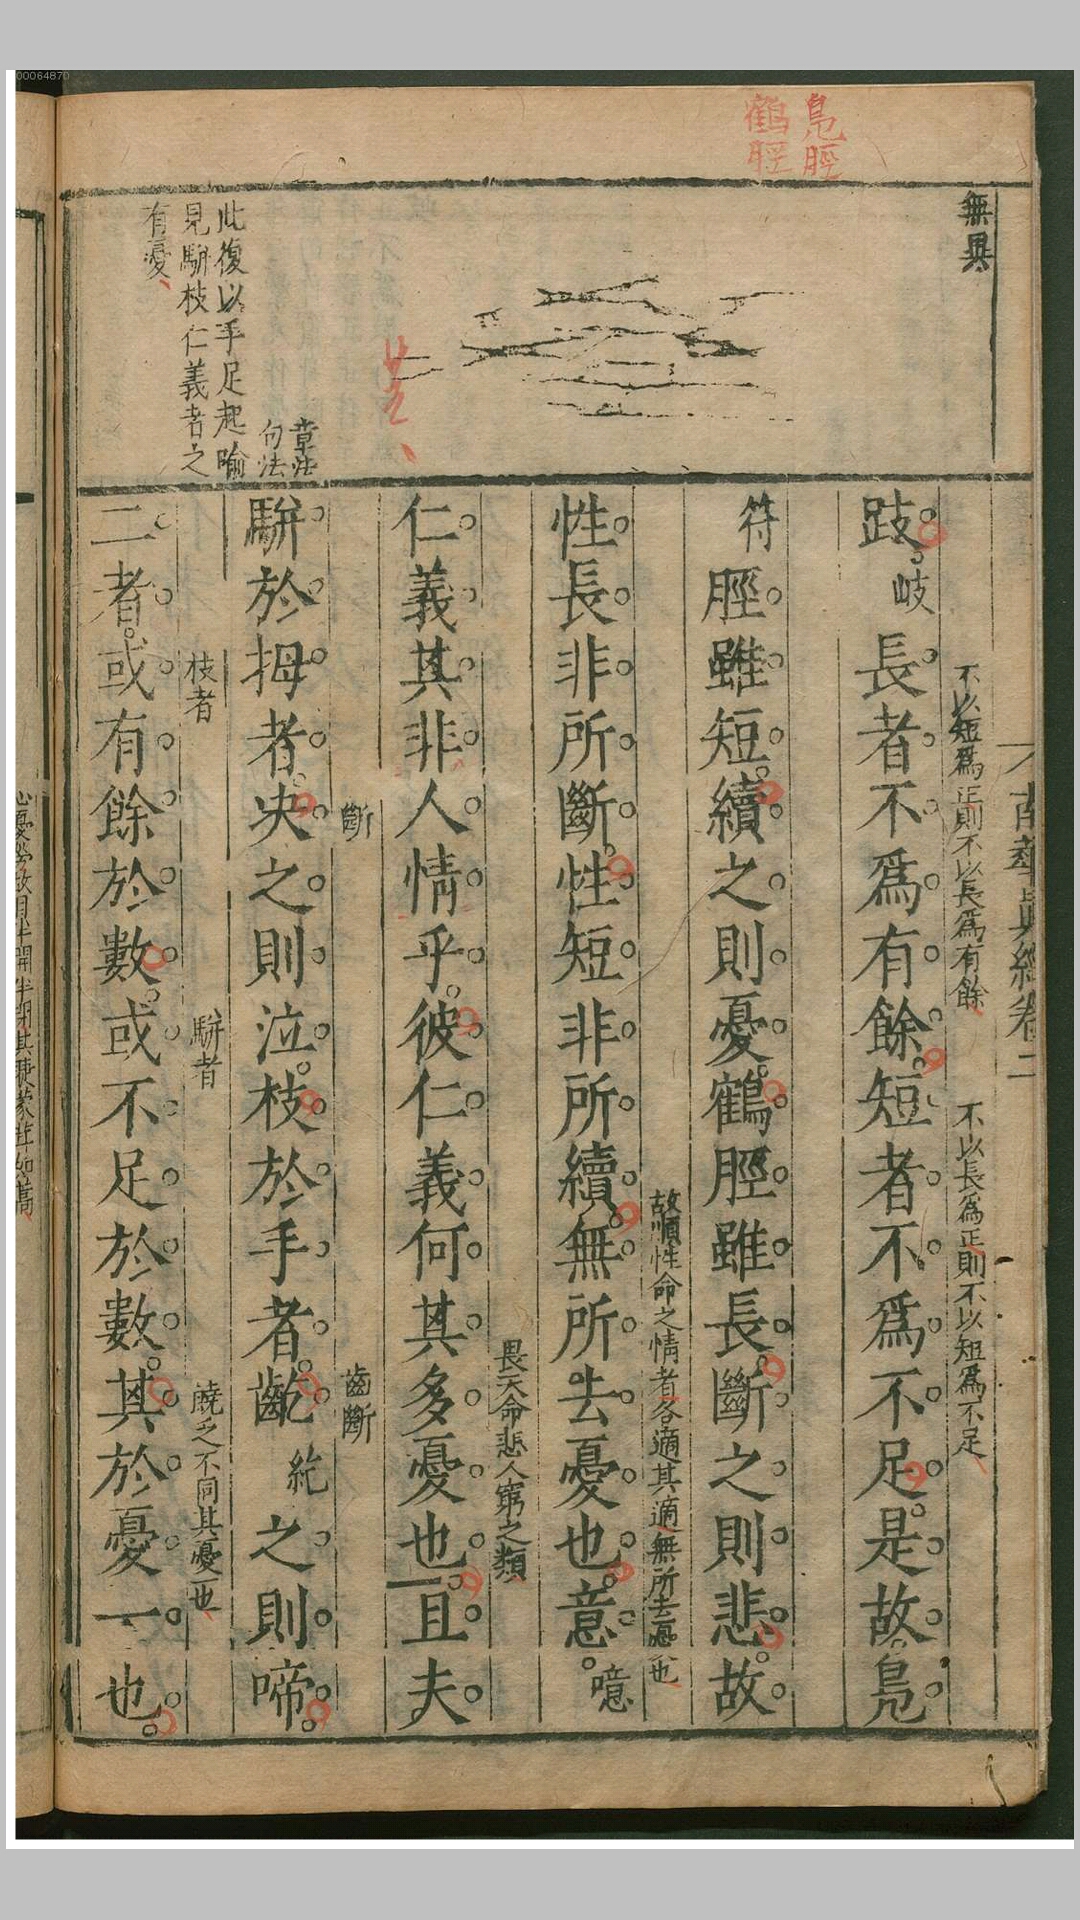 00064870
鳧脛
鶴脛
無異
章法
句法
此復以手足起喻
見駢枝仁義者之
有憂
南華眞經卷二
不以短爲正則不以長爲有餘
不以長爲正則不以短爲不足
跂岐長者不爲有餘短者不爲不足是故鳧
符脛雖短續之則憂鶴脛雖長斷之則悲故
故順性命之情者各適其適無所去憂也
性長非所斷性短非所續無所去憂也意噫
畏天命悲人窮之類
仁義其非人情乎彼仁義何其多憂也且夫
斷
齒斷
駢於拇者决之則泣枝於手者齕紇之則啼
枝者
駢者
饒乏不同其憂一也
二者或有餘於數或不足於數其於憂一也